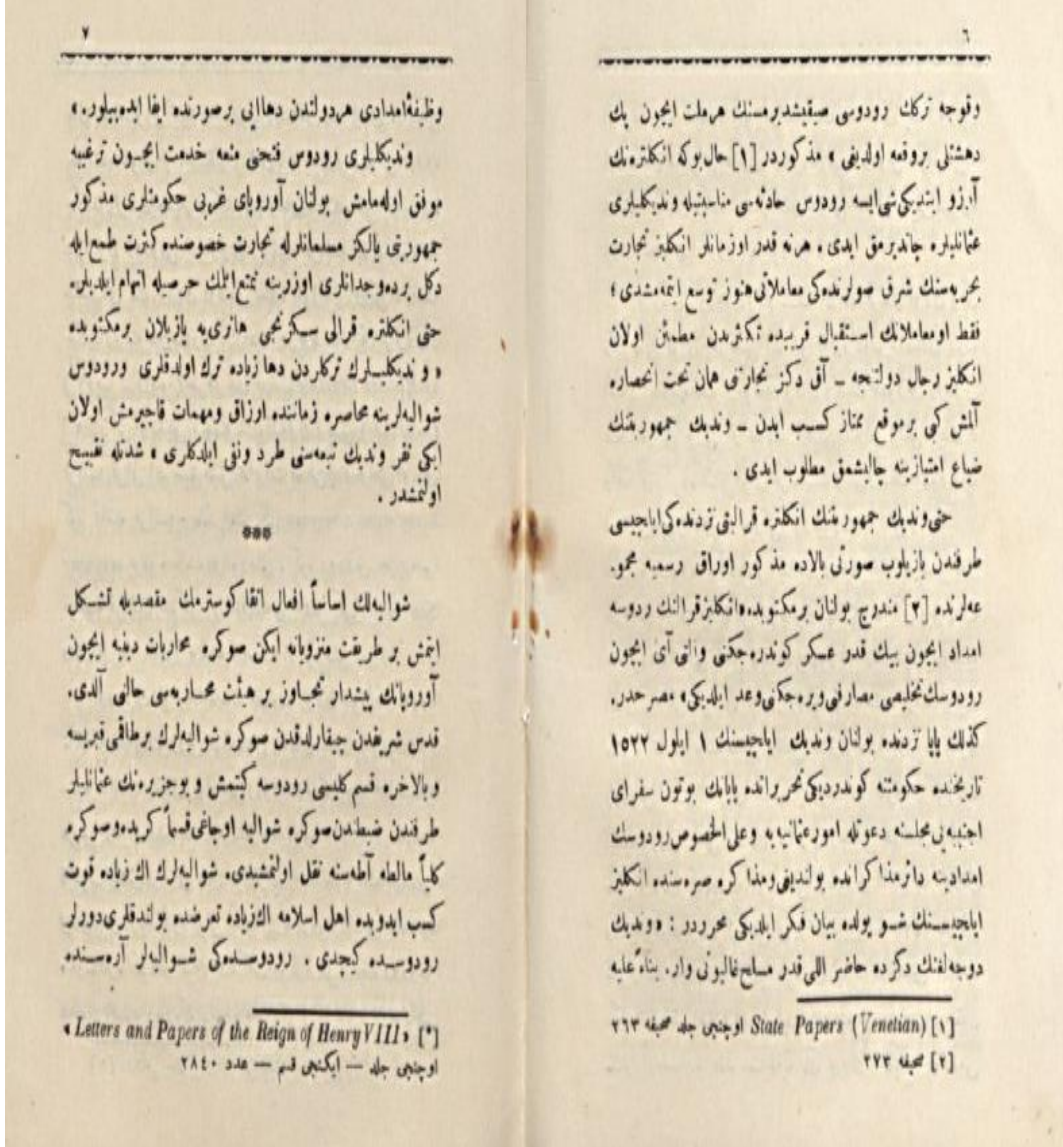 ٦
وقوجه تركك رودوسی صیقیشدیرمسنك هرملت ایچون پك
دهشتلی بروقعه اولدیغی » مذكوردر [١] حال‌بوكه انكلتره‌نك
آرزو ایتدیكی شی‌ایسه رودوس حادثه‌سی مناسبتیله وندیكلیلری
عثمانلیلره چاندیرمق ایدی . هرنه قدر اوزمانلر انكلیز تجارت
بحریه‌سنك شرق صولرنده‌كی معاملاتی هنوز توسع ایتمه‌مشدی ؛
فقط اومعاملاتك استقبال قریبده تكثرندن مطمئن اولان
انكلیز رجال دولتنجه ـ آق دكز تجارتنی همان تحت انحصاره
آلمش كبی برموقع ممتاز كسب ایدن ـ وندیك جمهوریتنك
ضیاع امتیازینه چالیشمق مطلوب ایدی .
حتی وندیك جمهوریتنك انكلتره قرالیتی نزدنده‌كی ایلچیسی
طرفندن یازیلوب صورتی بالاده مذكور اوراق رسمیه مجمو-
عه‌لرنده [٢] مندرج بولنان برمكتوبده «انكلیزقرالنك ردوسه
امداد ایچون بیك قدر عسكر كوندره‌جكنی والتی آی ایچون
رودوسك تخلیصی مصارفنی ویره‌جكنی وعد ایلدیكی» مصرحدر.
كذلك پاپا نزدنده بولنان وندیك ایلچیسنك ١ ایلول ١٥٢٢
تاریخنده حكومتنه كوندردیكی تحریراتده پاپانك بوتون سفرای
اجنبیه‌یی مجلسنه دعوتله امورعثمانیه‌یه وعلی الخصوص رودوسك
امدادینه دائرمذاكراتده بولندیغی ومذاكره صره‌سنده انكلیز
ایلچیسنك شو یولده بیان فكر ایلدیكی محرردر : «وندیك
دوجه‌لغنك دكزده حاضر اللی قدر مسلح قالیونی وار. بناءً علیه
[١] State Papers (Venetian) اوچنجی جلد صحیفه ٢٦٣
[٢] صحیفه ٢٧٣
٧
وظیفۀامدادی هردولتدن دهاایی برصورتده ایفا ایده‌بیلور. »
وندیكلیلری رودوس فتحنی منعه خدمت ایچون ترغیبه
موفق اوله‌مامش بولنان آوروپای غربی حكومتلری مذكور
جمهوریتی یالكز مسلمانلرله تجارت خصوصنده كثرت طمع‌ایله
دكل برده‌وجدانلری اوزرینه تمتع ایتمك حرصیله اتهام ایلدیلر.
حتی انكلتره قرالی سكزنجی هانری‌یه یازیلان برمكتوبده
« وندیكلیلرك تركلردن دها زیاده ترك اولدقلری ورودوس
شوالیه‌لرینه محاصره زماننده اوزاق ومهمات قاچیرمش اولان
ایكی نفر وندیك تبعه‌سنی طرد ونفی ایلدكلری » شدتله تقبیح
اولنمشدر .
***
شوالیه‌لك اساساً افعال اتقا كوسترمك مقصدیله تشكل
ایتمش بر طریقت منزویانه ایكن صوكره محاربات دینیه ایچون
آوروپانك پیشدار تجاوز بر هیئت محاربه‌سی حالنی آلدی.
قدس شریفدن چیقارلدقدن صوكره شوالیه‌لرك برطاقمی قبریسه
وبالاخره قسم كلیسی رودوسه كیتمش و بوجزیره‌نك عثمانلیلر
طرفندن ضبطندن‌صوكره شوالیه اوجاغی قسماً كریده‌وصوكره
كلیاً مالطه آطه‌سنه نقل اولنمشیدی. شوالیه‌لرك اك زیاده قوت
كسب ایدوبده اهل اسلامه اك‌زیاده تعرضده بولندقلری‌دورلر
رودوسده كچدی . رودوسده‌كی شوالیه‌لر آره‌سنده
[*] «Letters and Papers of the Reign of Henry VIII»
اوچنجی جلد — ایكنجی قسم — عدد ٢٨٤٠